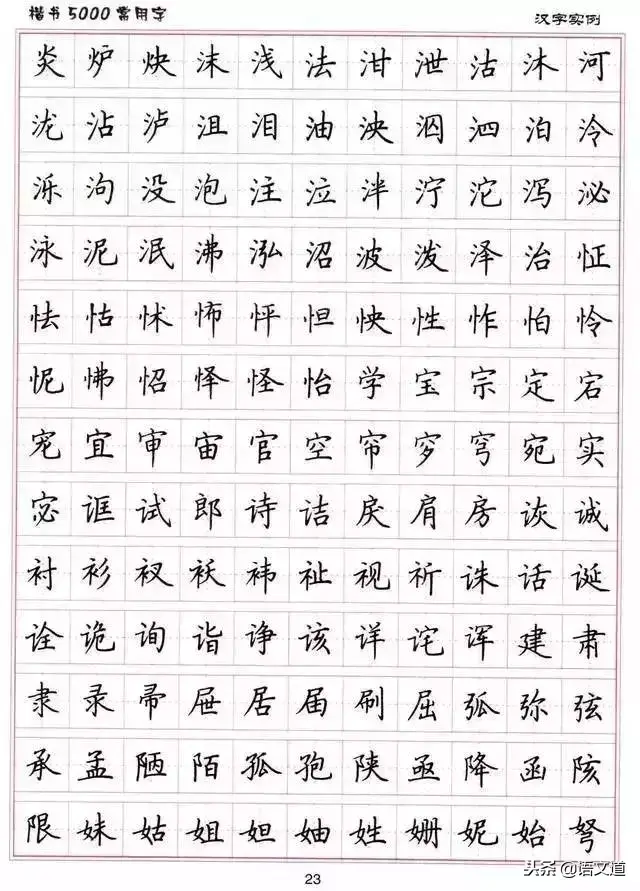 楷书5000常用字
汉字实例
炎炉炔沫浅法泔泄沽沐河
泷沾泸沮泪油泱泅泗泊泠
泺泃没泡注泣泮泞沱泻泌
泳泥泯沸泓沼波泼泽治怔
怯怙怵怖怦怛怏性怍怕怜
怩怫怊怿怪怡学宝宗定宕
宠宜审宙官空帘穸穹宛实
宓诓试郎诗诘戾肩房诙诚
衬衫衩袄祎祉视祈诛话诞
诠诡询诣诤该详诧诨建肃
隶录帚屉居届刷屈弧弥弦
承孟陋陌孤孢陕亟降函陔
限妹姑姐妲妯姓姗妮始弩
23
头条@语文道